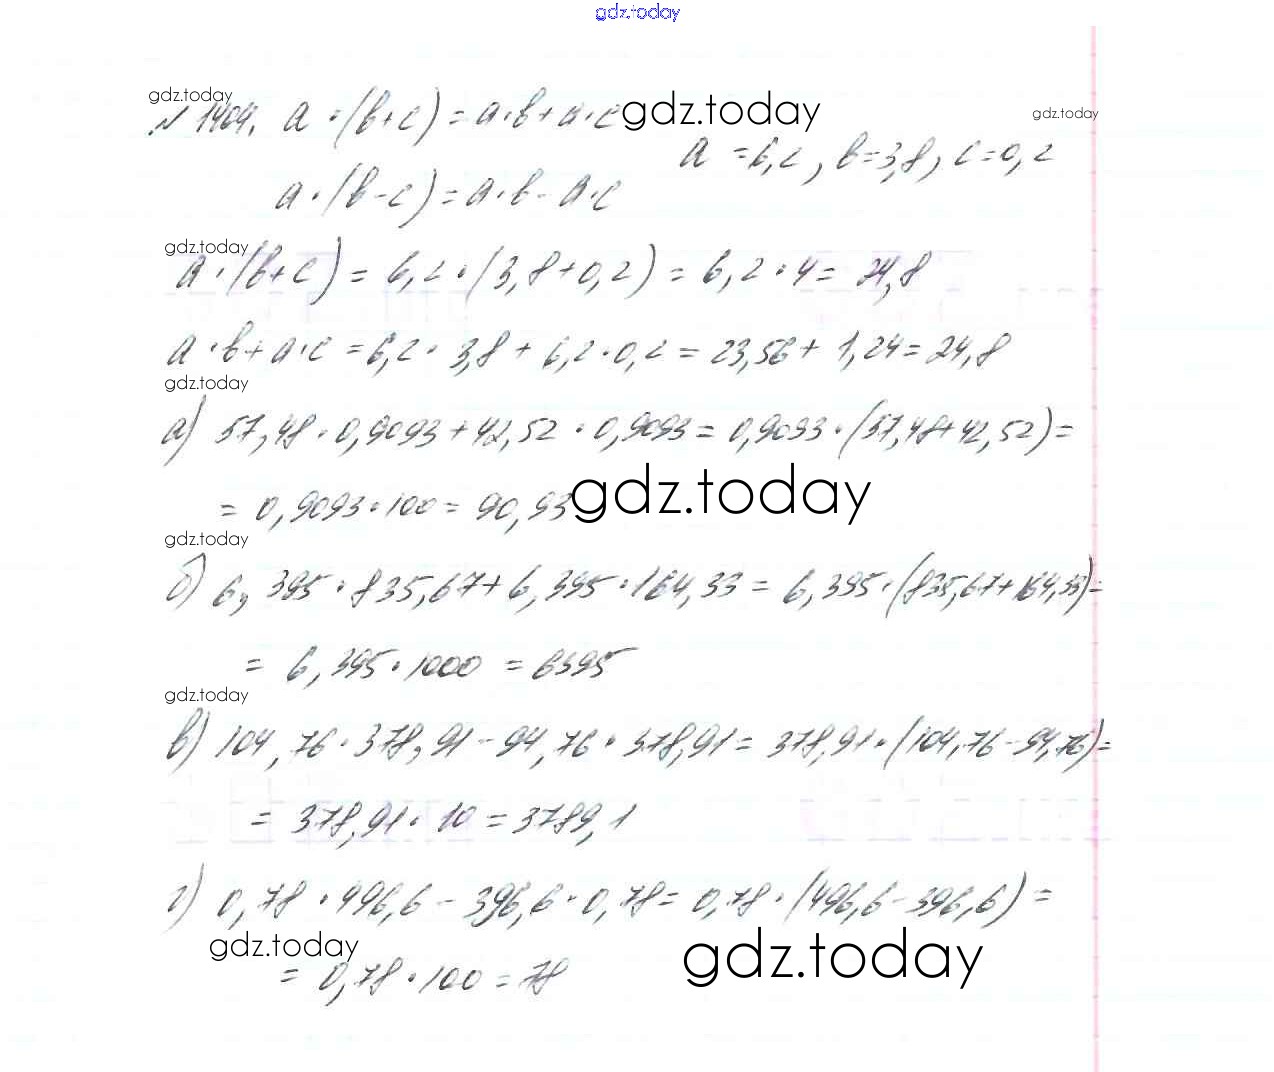 gdz.today
gdz.today
№ 1404. a·(b+c) = a·b+a·c gdz.today
gdz.today
a = 6,2, b=3,8, c=0,2
a·(b-c) = a·b - a·c
gdz.today
a·(b+c) = 6,2·(3,8+0,2) = 6,2·4 = 24,8
a·b+a·c = 6,2·3,8 + 6,2·0,2 = 23,56 + 1,24 = 24,8
gdz.today
а) 57,48·0,9093+42,52·0,9093 = 0,9093·(57,48+42,52) =
= 0,9093·100 = 90,93 gdz.today
gdz.today
б) 6,395·835,67+6,395·164,33 = 6,395·(835,67+164,33) =
= 6,395·1000 = 6395
gdz.today
в) 104,76·378,91 - 94,76·378,91 = 378,91·(104,76-94,76) =
= 378,91·10 = 3789,1
г) 0,78·496,6 - 396,6·0,78 = 0,78·(496,6-396,6) =
gdz.today gdz.today
= 0,78·100 = 78